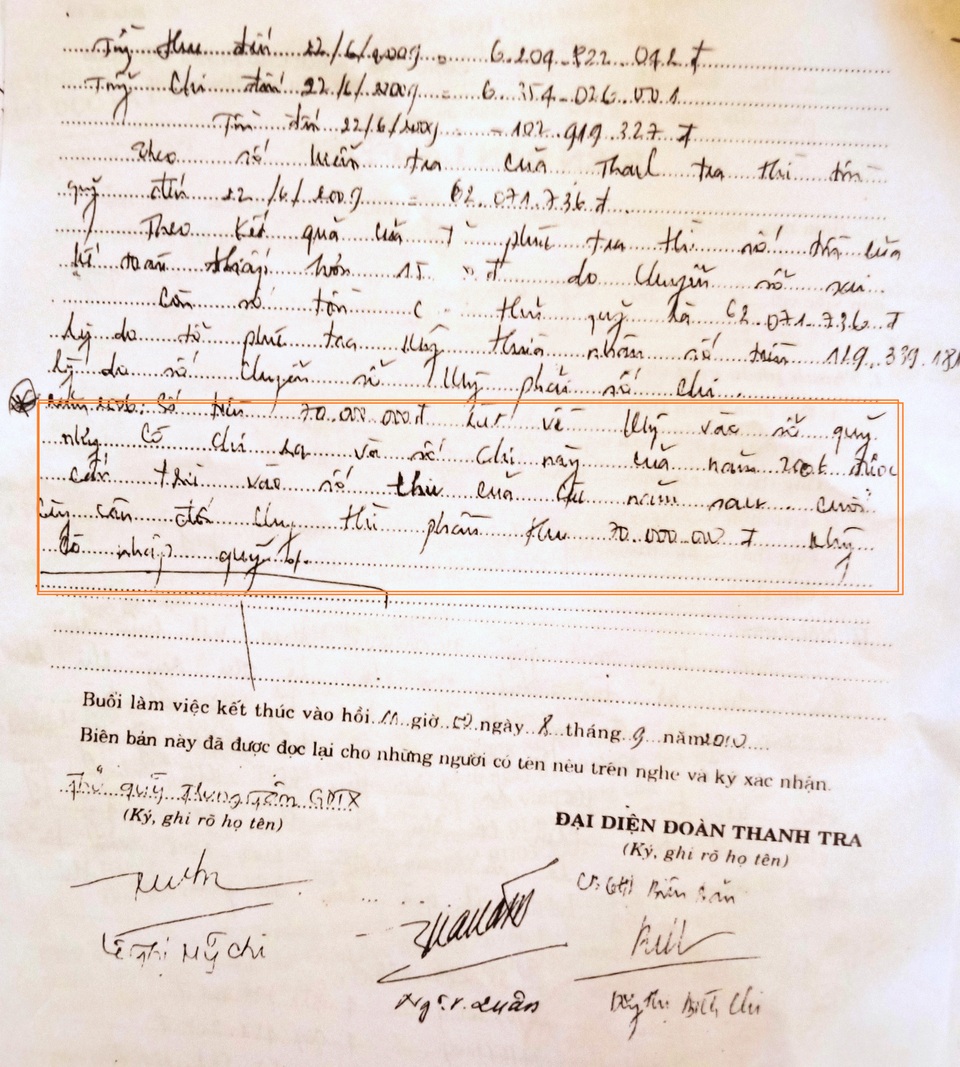 Tổng thu đến 22/6/2009 = 6.209.822.092 đ
Tổng Chi đến 22/6/2009 = 6.354.026.001
Tồn đến 22/6/2009 = -102.919.327 đ
Theo số của Thanh tra thì tồn
quỹ đến 22/6/2009 = 62.071.736 đ.
Theo kết quả của Tổ phúc tra thì số tồn của
kế toán thấp hơn 15 đ do chuyển sổ sai.
Còn số tồn thủ quỹ là 62.071.736 đ
lý do tổ phúc tra không thừa nhận số tiền 119.339.181
lý do số chuyển sổ không phải số chi.
Năm 2006: Số tiền 70.000.000đ rút về không vào sổ quỹ
nhưng có chi ra và số chi này của năm 2006 được
thì vào số thu của năm sau. cuối
cùng cân đối chung thì phần thu 70.000.000 đ không
có nhập quỹ.
Buổi làm việc kết thúc vào hồi 11 giờ 00 ngày 8 tháng 9 năm 2010
Biên bản này đã được đọc lại cho những người có tên nêu trên nghe và ký xác nhận.
Thủ quỹ Trung tâm GDTX
(Ký, ghi rõ họ tên)
ĐẠI DIỆN ĐOÀN THANH TRA
(Ký, ghi rõ họ tên)
Biên bản
Lê Thị Mỹ Chi
Ng T.V. Xuân
Bích Chi